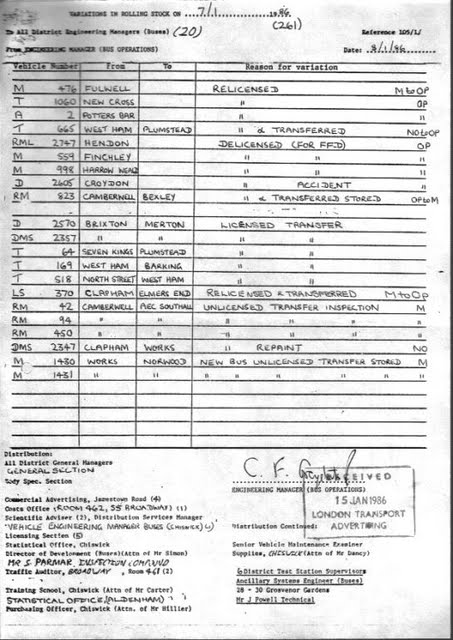 VARIATIONS IN ROLLING STOCK ON 7/1 1986
(261)
To All District Engineering Managers (Buses) (20) Reference 105/1/
From ENGINEERING MANAGER (BUS OPERATIONS) Date: 8/1/86
Vehicle Number From To Reason for variation
M 476 FULWELL RELICENSED M to OP
T 1060 NEW CROSS " OP
A 2 POTTERS BAR " "
T 665 WEST HAM PLUMSTEAD " & TRANSFERRED NO to OP
RML 2747 HENDON DELICENSED (FOR FFD) OP
M 559 FINCHLEY " " "
M 998 HARROW WEALD " " "
D 2605 CROYDON " ACCIDENT "
RM 823 CAMBERWELL BEXLEY " & TRANSFERRED STORED OP to M
D 2570 BRIXTON MERTON LICENSED TRANSFER
DMS 2357 " " " "
T 64 SEVEN KINGS PLUMSTEAD " "
T 169 WEST HAM BARKING " "
T 518 NORTH STREET WEST HAM " "
LS 370 CLAPHAM ELMERS END RELICENSED & TRANSFERRED M to OP
RM 42 CAMBERWELL AEC SOUTHALL UNLICENSED TRANSFER INSPECTION M
RM 94 " " " " " "
RM 450 " " " " " "
DMS 2347 CLAPHAM WORKS " REPAINT NO
M 1430 WORKS NORWOOD NEW BUS UNLICENSED TRANSFER STORED M
M 1431 " " " " " " " "
Distribution:
All District General Managers
GENERAL SECTION
Body Spec. Section
C. F.
ENGINEERING MANAGER (BUS OPERATIONS)
RECEIVED
15 JAN 1986
LONDON TRANSPORT
ADVERTISING
Commercial Advertising, Jamestown Road (4)
Costs Office (ROOM 462, 55 BROADWAY) (1)
Scientific Adviser (2), Distribution Services Manager
VEHICLE ENGINEERING MANAGER BUSES (CHISWICK)
Distribution Continued:
Licensing Section (5)
Statistical Office, Chiswick
Director of Development (Buses)(Attn of Mr Simon)
MR S. PARMAR, INSPECTION COMPOUND
Traffic Auditor, BROADWAY, Room 461 (2)
Senior Vehicle Maintenance Examiner
Supplies, CHISWICK (Attn of Mr Dancy)
6 District Test Station Supervisors
Ancillary Systems Engineer (Buses)
28 - 30 Grosvenor Gardens
Mr J Powell Technical
Training School, Chiswick (Attn of Mr Carter)
STATISTICAL OFFICE (ALDENHAM)
Purchasing Officer, Chiswick (Attn of Mr Hillier)